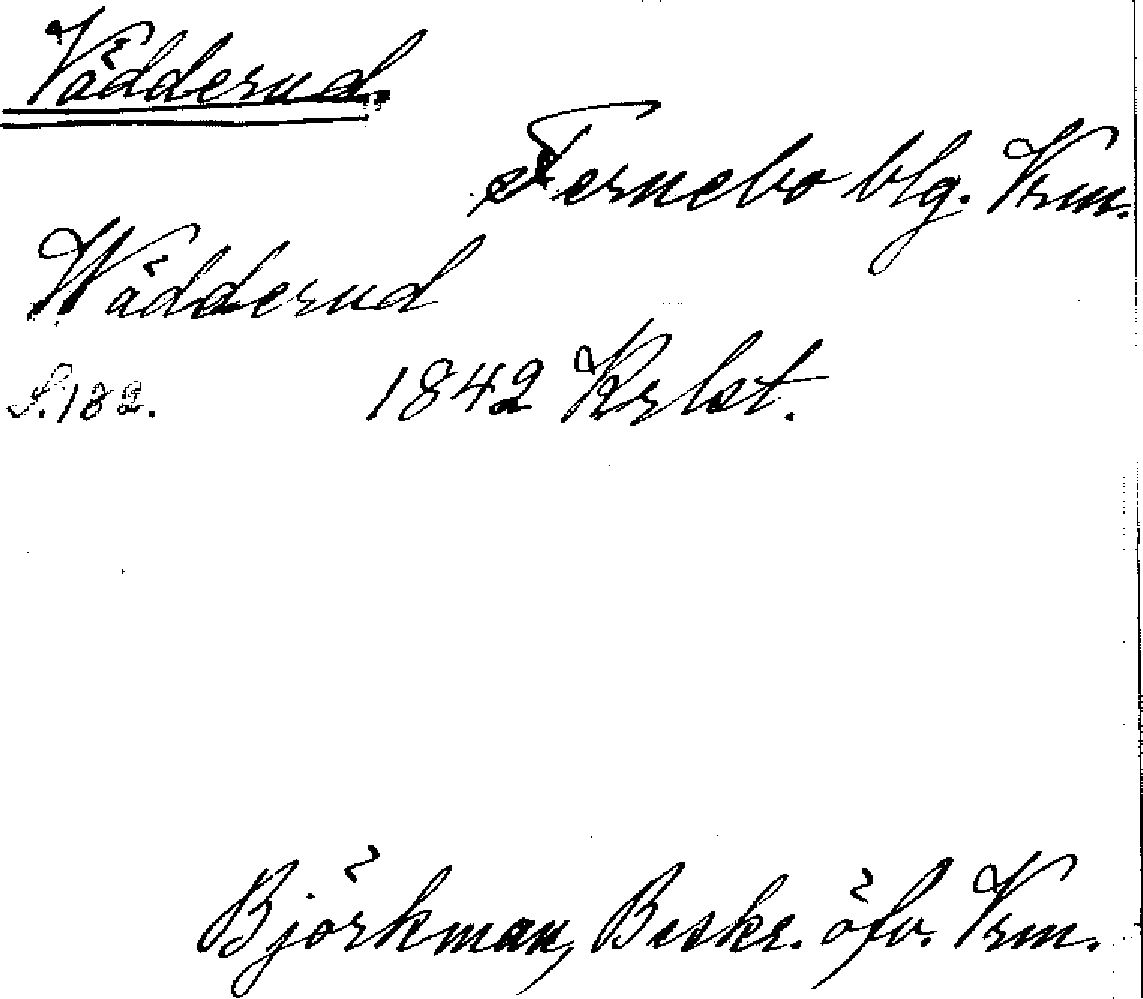 Vädderud.
Fernebo blg. Vrm.
Wädderud
S. 182. 1842 Krlst.
Björkman, Beskr. öfv. Vrm.